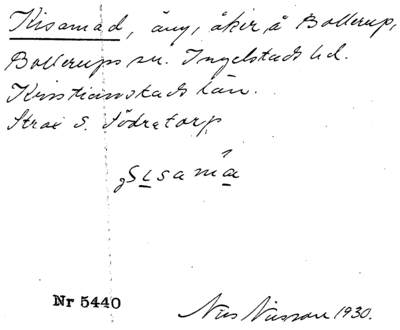 Kisamad, äng, åker, å Bollerup,
Bollerups sn. Ingelstads hd.
Kristianstads län.
Strax S. Södratorp
sisamá
Nr 5440
Nils Nilsson 1930.